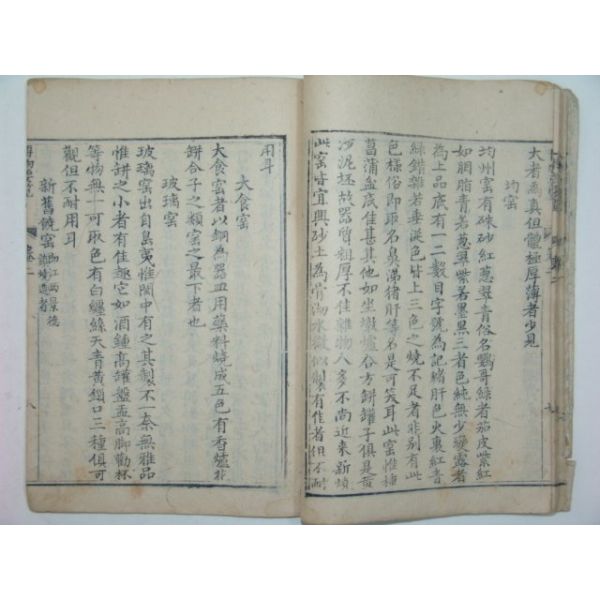 大者為真但體極厚薄者少見
均窑
均州窑有硃砂紅蔥翠青俗名鸚哥綠者茄皮紫紅
如胭脂青若葱翠紫若墨黑三者色純無少變露者
為上品底有一二數目字號為記豬肝色火裏紅青
綠錯雜若垂涎色皆上三色之燒不足者非別有此
色樣俗即取名鼻涕猪肝等名是可笑耳此窑惟種
菖蒲盆底佳甚其他如坐墩爐合方缾罐子俱是黃
沙泥坯故器質粗厚不佳雜物人多不尚近來新燒
此窑皆宜興砂土為骨泑水微似製有佳者但不耐
用耳
大食窑
大食窑者以銅為器皿用藥料燒成五色有香爐花
缾合子之類窑之最下者也
玻璃窑
玻璃窑出自島夷惟閩中有之其製不一奈無雅品
惟缾之小者有佳趣它如酒鍾高罐盤盂高脚勸杯
等物無一可取色有白纏絲天青黃鎖口三種俱可
觀但不耐用耳
新舊饒窑 即江西景德鎮燒造者
卷二
八